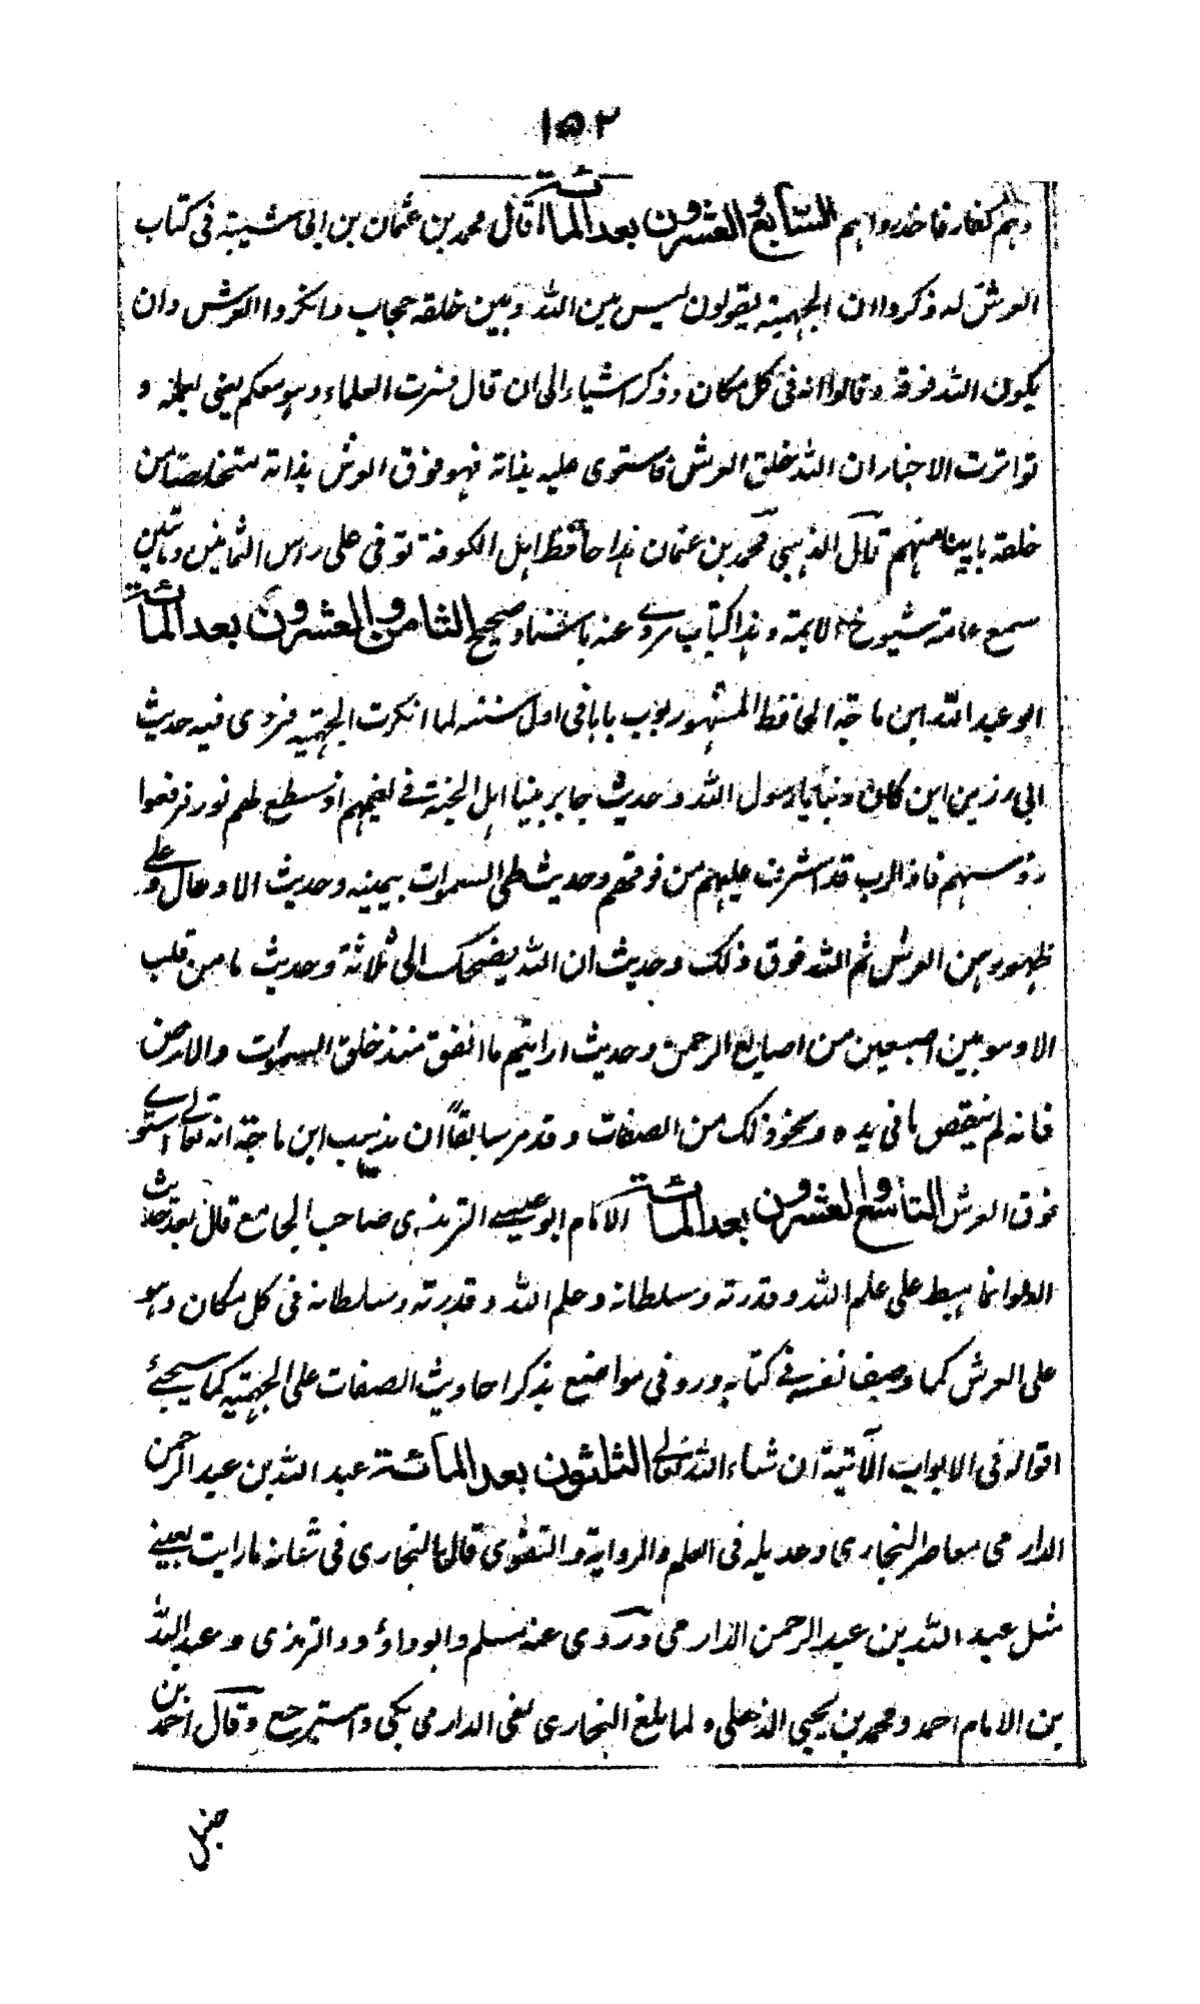 ١٥٢
وهم كفار فاحذروهم السابع والعشرون بعد المائة قال محمد بن عثمان بن ابى شيبة فى كتاب
العرش له ذكروا ان الجهمية يقولون ليس بين الله وبين خلقه حجاب وانكروا العرش وان
يكون الله فوقه وقالوا انه فى كل مكان وذكر اشياء الى ان قال فسرت العلماء وهو معكم يعنى بعلمه و
تواترت الاخبار ان الله خلق العرش فاستوى عليه بذاته فهو فوق العرش بذاته متخلصا من
خلقه باينا منهم قال الذهبى محمد بن عثمان هذا حافظ اهل الكوفة توفى على راس الثمانين ومائتين
سمع عامة شيوخ الايمة وهذا كتاب مروى عنه باسناد صحيح الثامن والعشرون بعد المائة
ابو عبد الله ابن ماجة الحافظ المشهور بوب بابا فى اول سننه لما انكرت الجهمية فروى فيه حديث
ابى رزين اين كان ربنا يا رسول الله وحديث جابر بينا اهل الجنة فى نعيمهم اذ سطع لهم نور فرفعوا
رؤسهم فاذا الرب قد اشرف عليهم من فوقهم وحديث طى السموات بيمينه وحديث الاوعال و على
ظهورهن العرش ثم الله فوق ذلك وحديث ان الله يضحك الى ثلاثة وحديث ما من قلب
الا وهو بين اصبعين من اصابع الرحمن وحديث ارايتم ما انفق منذ خلق السموات والارض
فانه لم ينقص ما فى يده ونحو ذلك من الصفات وقد مر سابقاً ان مذهب ابن ماجة انه تعالى استوى
فوق العرش التاسع والعشرون بعد المائة الامام ابو عيسى الترمذى صاحب الجامع قال بعد حديث
الدلو انما هبط على علم الله وقدرته وسلطانه وعلم الله وقدرته وسلطانه فى كل مكان وهو
على العرش كما وصف نفسه فى كتابه ورد فى مواضع بذكر احاديث الصفات على الجهمية كما سيجئ
اقواله فى الابواب الآتية ان شاء الله تعالى الثلثون بعد المائة عبد الله بن عبد الرحمن
الدارمى معاصر البخارى وعديله فى العلم والرواية والتقوى قال البخارى فى شانه ما رايت بعينى
مثل عبد الله بن عبد الرحمن الدارمى وروى عنه مسلم وابو داؤد والترمذى وعبد الله
بن الامام احمد ومحمد بن يحيى الذهلى ولما بلغ البخارى نعى الدارمى بكى واسترجع وقال احمد بن
حنبل